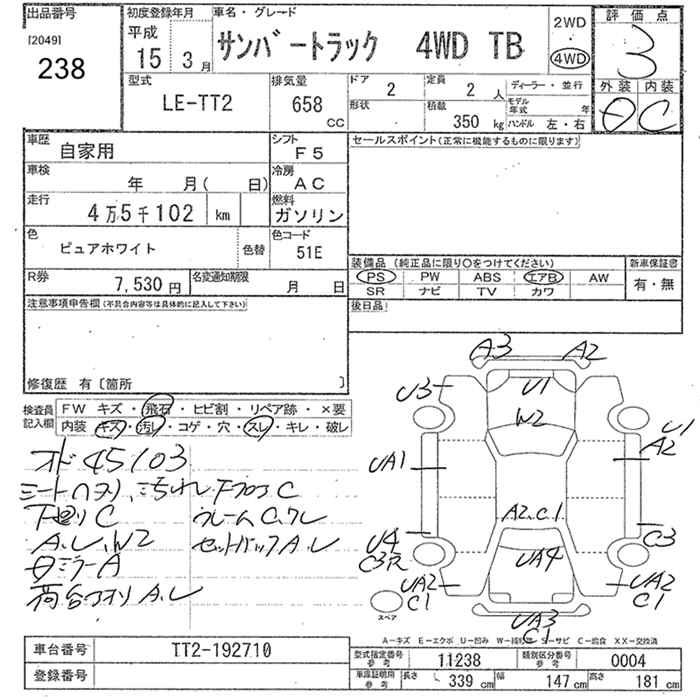 出品番号
[2049]
238
初度登録年月
平成
15 3月
車名・グレード
サンバートラック 4WD TB
2WD
4WD
評価点
3
外装 内装
C
型式
LE-TT2
排気量
658
CC
ドア
2
定員
2 人
形状
積載
350 kg
ディーラー・並行
モデル年式 年
ハンドル 左・右
車歴
自家用
シフト
F5
車検
年 月( 日)
冷房
AC
走行
4万5千102 km
燃料
ガソリン
色
ピュアホワイト
色替
色コード
51E
R券
7,530 円
名変通知期限
月 日
セールスポイント(正常に機能するものに限ります)
装備品 (純正品に限り〇をつけてください)
PS PW ABS エアB AW
SR ナビ TV カワ
新車保証書
有・無
後日品
注意事項申告欄(不具合内容等は具体的に記入して下さい)
修復歴 有〔箇所 〕
検査員記入欄
FW キズ・飛石・ヒビ割・リペア跡・×要
内装 キズ・汚レ・コゲ・穴・スレ・キレ・破レ
オド 45103
下廻りC
A.L.W2
ミラーA
荷台 A.L
A3
A2
U3
U1
W2
U1
A2
UA1
A2.C.1
U4
C3R
C3
UA4
UA2
C1
UA2
C1
UA3
C1
スペア
A-キズ E-エクボ U-凹み W-補修跡 S-サビ C-腐食 XX-交換済
車台番号
TT2-192710
登録番号
型式指定番号
参考
11238
類別区分番号
参考
0004
車庫証明用
参考
長さ 339 cm
幅 147 cm
高さ 181 cm